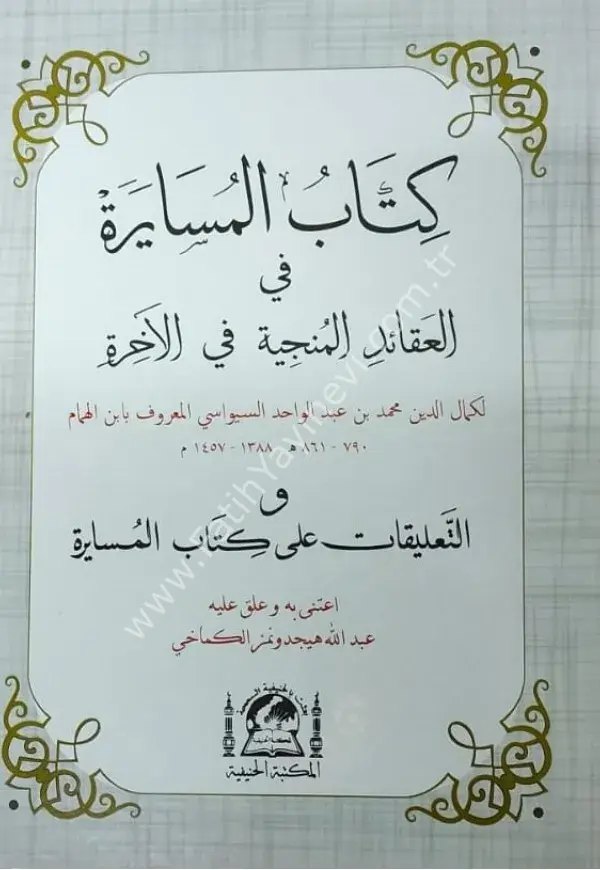 كِتَابُ المُسَايَرَة
في
العَقَائِدِ المُنجِية في الآخِرة
لكمال الدين محمد بن عبد الواحد السيواسي المعروف بابن الهمام
٧٩٠ - ٨٦١ هـ ١٣٨٨ - ١٤٥٧ م
و
التَعليقات على كِتَاب المُسايرة
اعتنى به و علق عليه
عبد الله هيجدونمز الكماخي
المكتبة الحنيفية
www.FatihYayinevi.com.tr